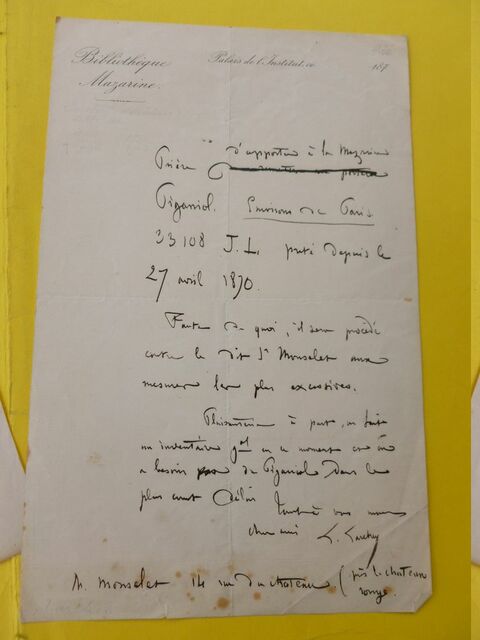 Bibliothèque Palais de l'Institut, ce 187
Mazarine.
d'apporter à la Mazarine
Prière
Piganiol. Environs de Paris
33108 J. L. prêté depuis le
27 avril 1870.
Faute de quoi, il sera procédé
contre le dit Sr Monselet aux
mesures les plus excessives.
Plaisanterie à part, on fait
un inventaire gal en ce moment et on
a besoin de Piganiol dans le
plus court délai
Tout à vous mon
cher ami L. Larchey
M. Monselet 14 rue du chateau (près le chateau
rouge.